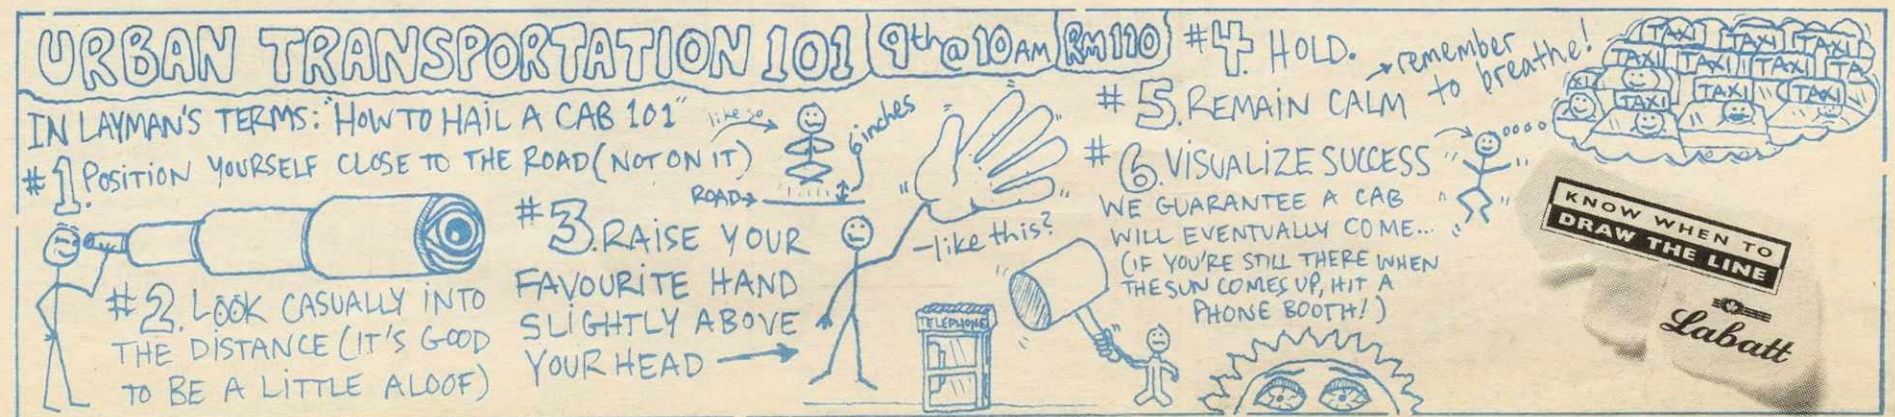 URBAN TRANSPORTATION 101 9th @ 10AM RM110
IN LAYMAN'S TERMS: "HOW TO HAIL A CAB 101"
#1. POSITION YOURSELF CLOSE TO THE ROAD (NOT ON IT)
like so
6 inches
ROAD
#2. LOOK CASUALLY INTO
THE DISTANCE (IT'S GOOD
TO BE A LITTLE ALOOF)
#3. RAISE YOUR
FAVOURITE HAND
SLIGHTLY ABOVE
YOUR HEAD
-like this?
TELEPHONE
#4. HOLD.
#5. REMAIN CALM
remember
to breathe!
#6. VISUALIZE SUCCESS
WE GUARANTEE A CAB
WILL EVENTUALLY COME...
(IF YOU'RE STILL THERE WHEN
THE SUN COMES UP, HIT A
PHONE BOOTH!)
TAXI TAXI TAXI
TAXI TAXI TAXI TA
XI TAXI TAXI TAXI
KNOW WHEN TO
DRAW THE LINE
Labatt